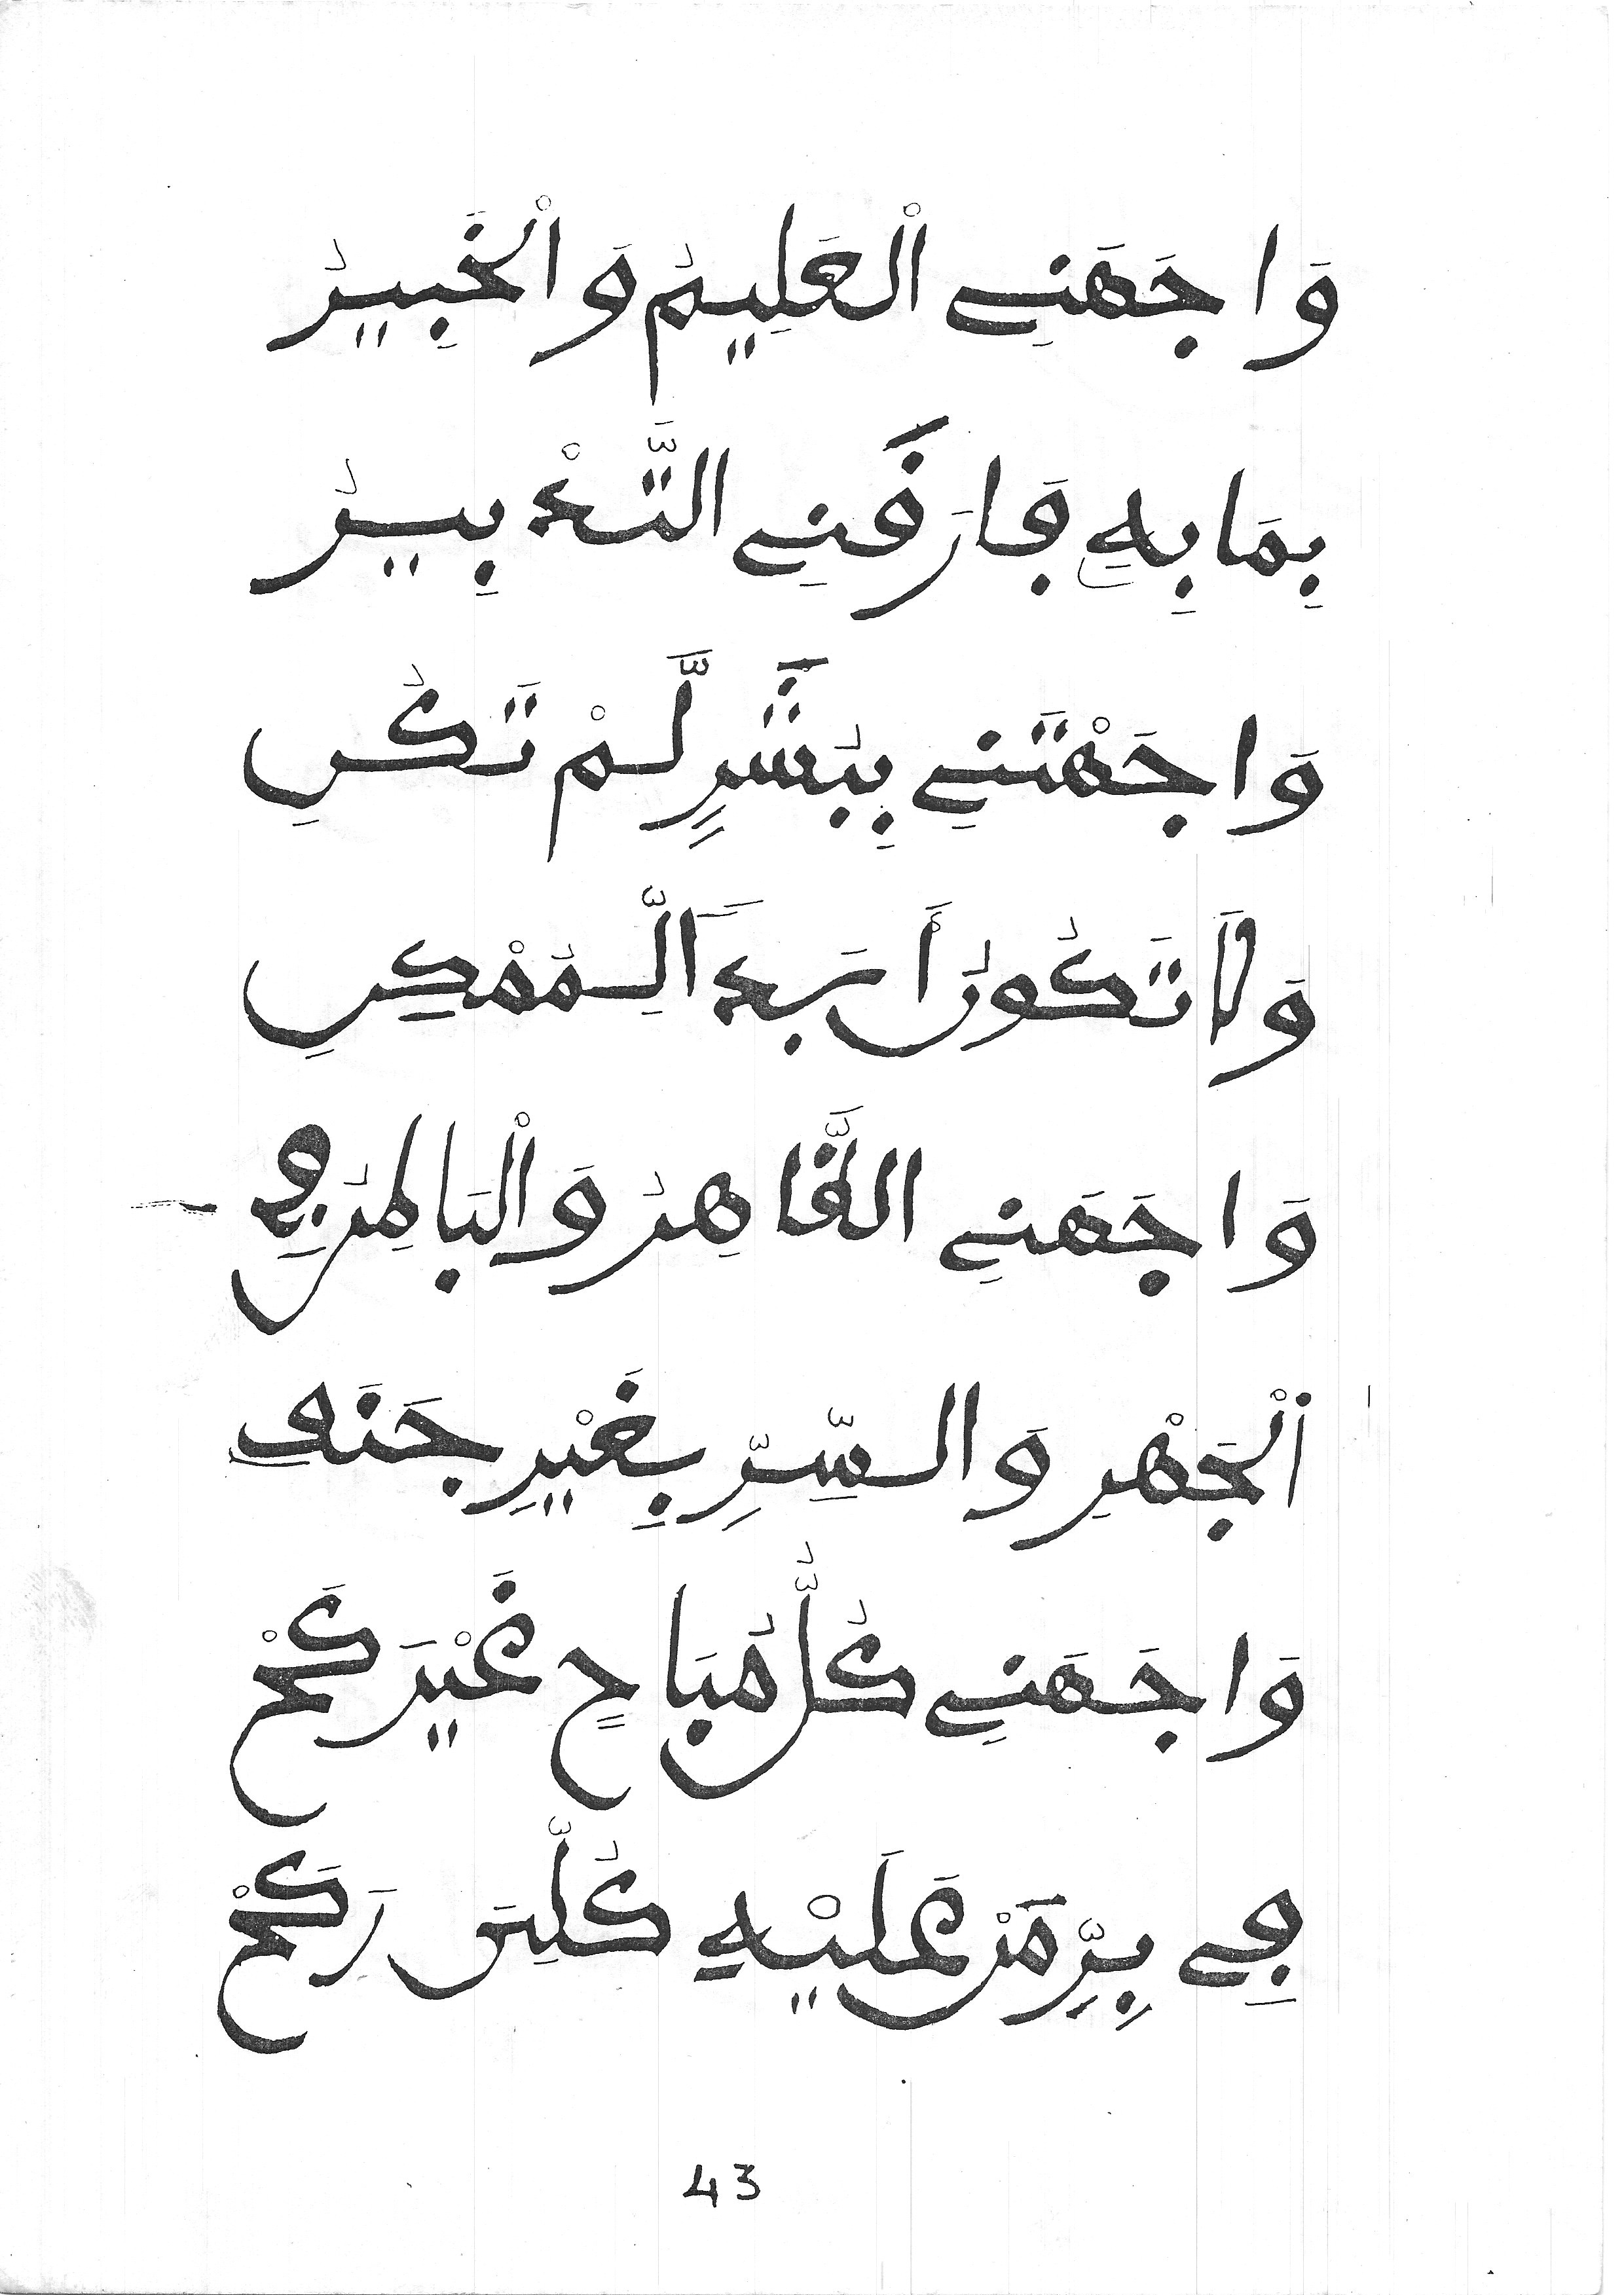 وَاجَهَنِي الْعَلِيمُ وَالْخَبِيرُ
بِمَا بِهِ فَارَقَنِي التَّدْبِيرُ
وَاجَهْتَنِي بِبُشَرٍ لَّمْ تَكُنِ
وَلَا تَكُونُ أَبَدًا لِّمُمْكِنِ
وَاجَهَنِي الظَّاهِرُ وَالْبَاطِنُ فِي
اَلْجَهْرِ وَالسِّرِّ بِغَيْرِ جَنَفِ
وَاجَهَنِي كُلُّ مُبَاحٍ غَيْرَ
فِي بِرِّ مَنْ عَلَيْهِ كُلِّي
43